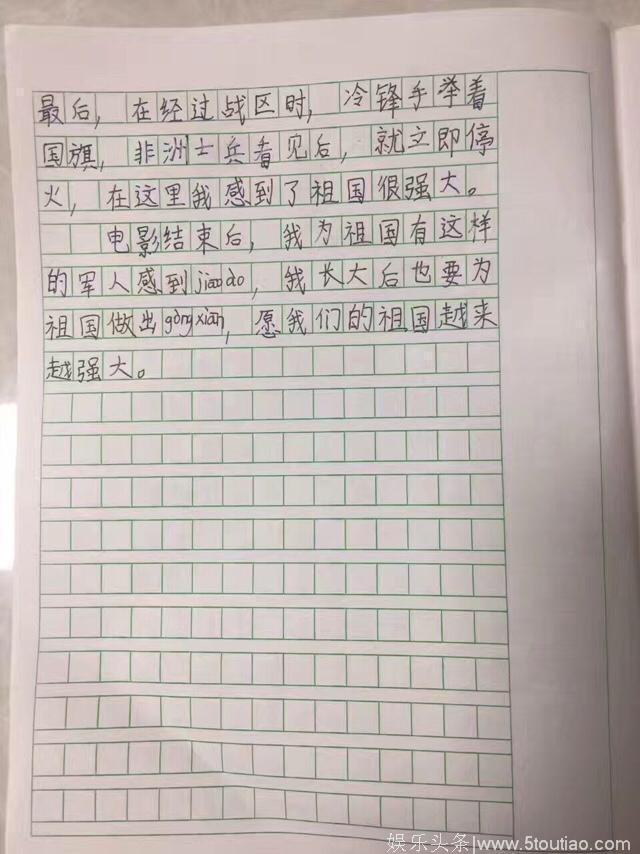 最后，在经过战区时，冷锋手举着
国旗，非洲士兵看见后，就立即停
火，在这里我感到了祖国很强大。
电影结束后，我为祖国有这样
的军人感到jiāoào，我长大后也要为
祖国做出gòngxiàn，愿我们的祖国越来
越强大。
娱乐头条 www.5toutiao.com